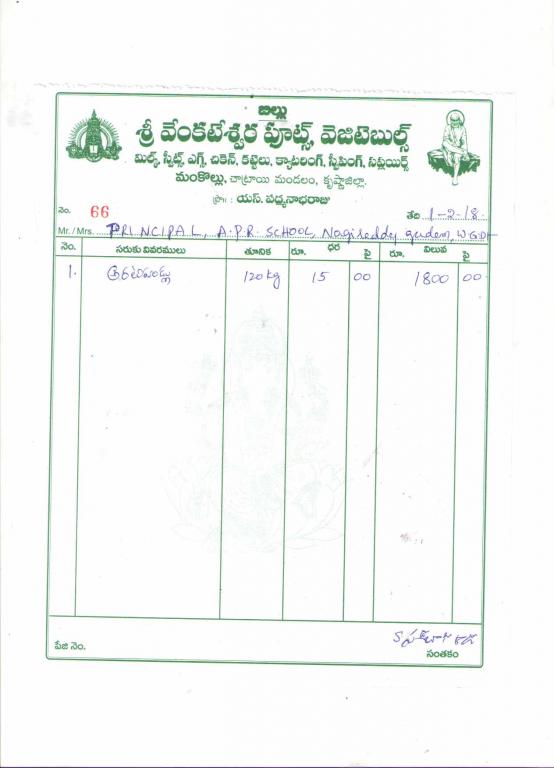 బిల్లు
శ్రీ వేంకటేశ్వర ఫూట్స్, వెజిటెబుల్స్
మిల్క్, స్వీట్స్, ఎగ్స్, చికెన్, కట్టెలు, క్యాటరింగ్, స్వీపింగ్, సప్లయిర్స్
మంకొల్లు, చాట్రాయి మండలం, కృష్ణాజిల్లా.
ప్రొ॥ : యస్. పద్మనాభరాజు
నెం. 66 తేది 1-2-18.
Mr. / Mrs. PRINCIPAL, A.P.R. SCHOOL, Nagireddy gudem, W.G.Dt
నెం. సరుకు వివరములు తూనిక రూ. ధర పై రూ. విలువ పై
1. అరటిపండ్లు 120 kg 15 00 1800 00
పేజి నెం. సంతకం